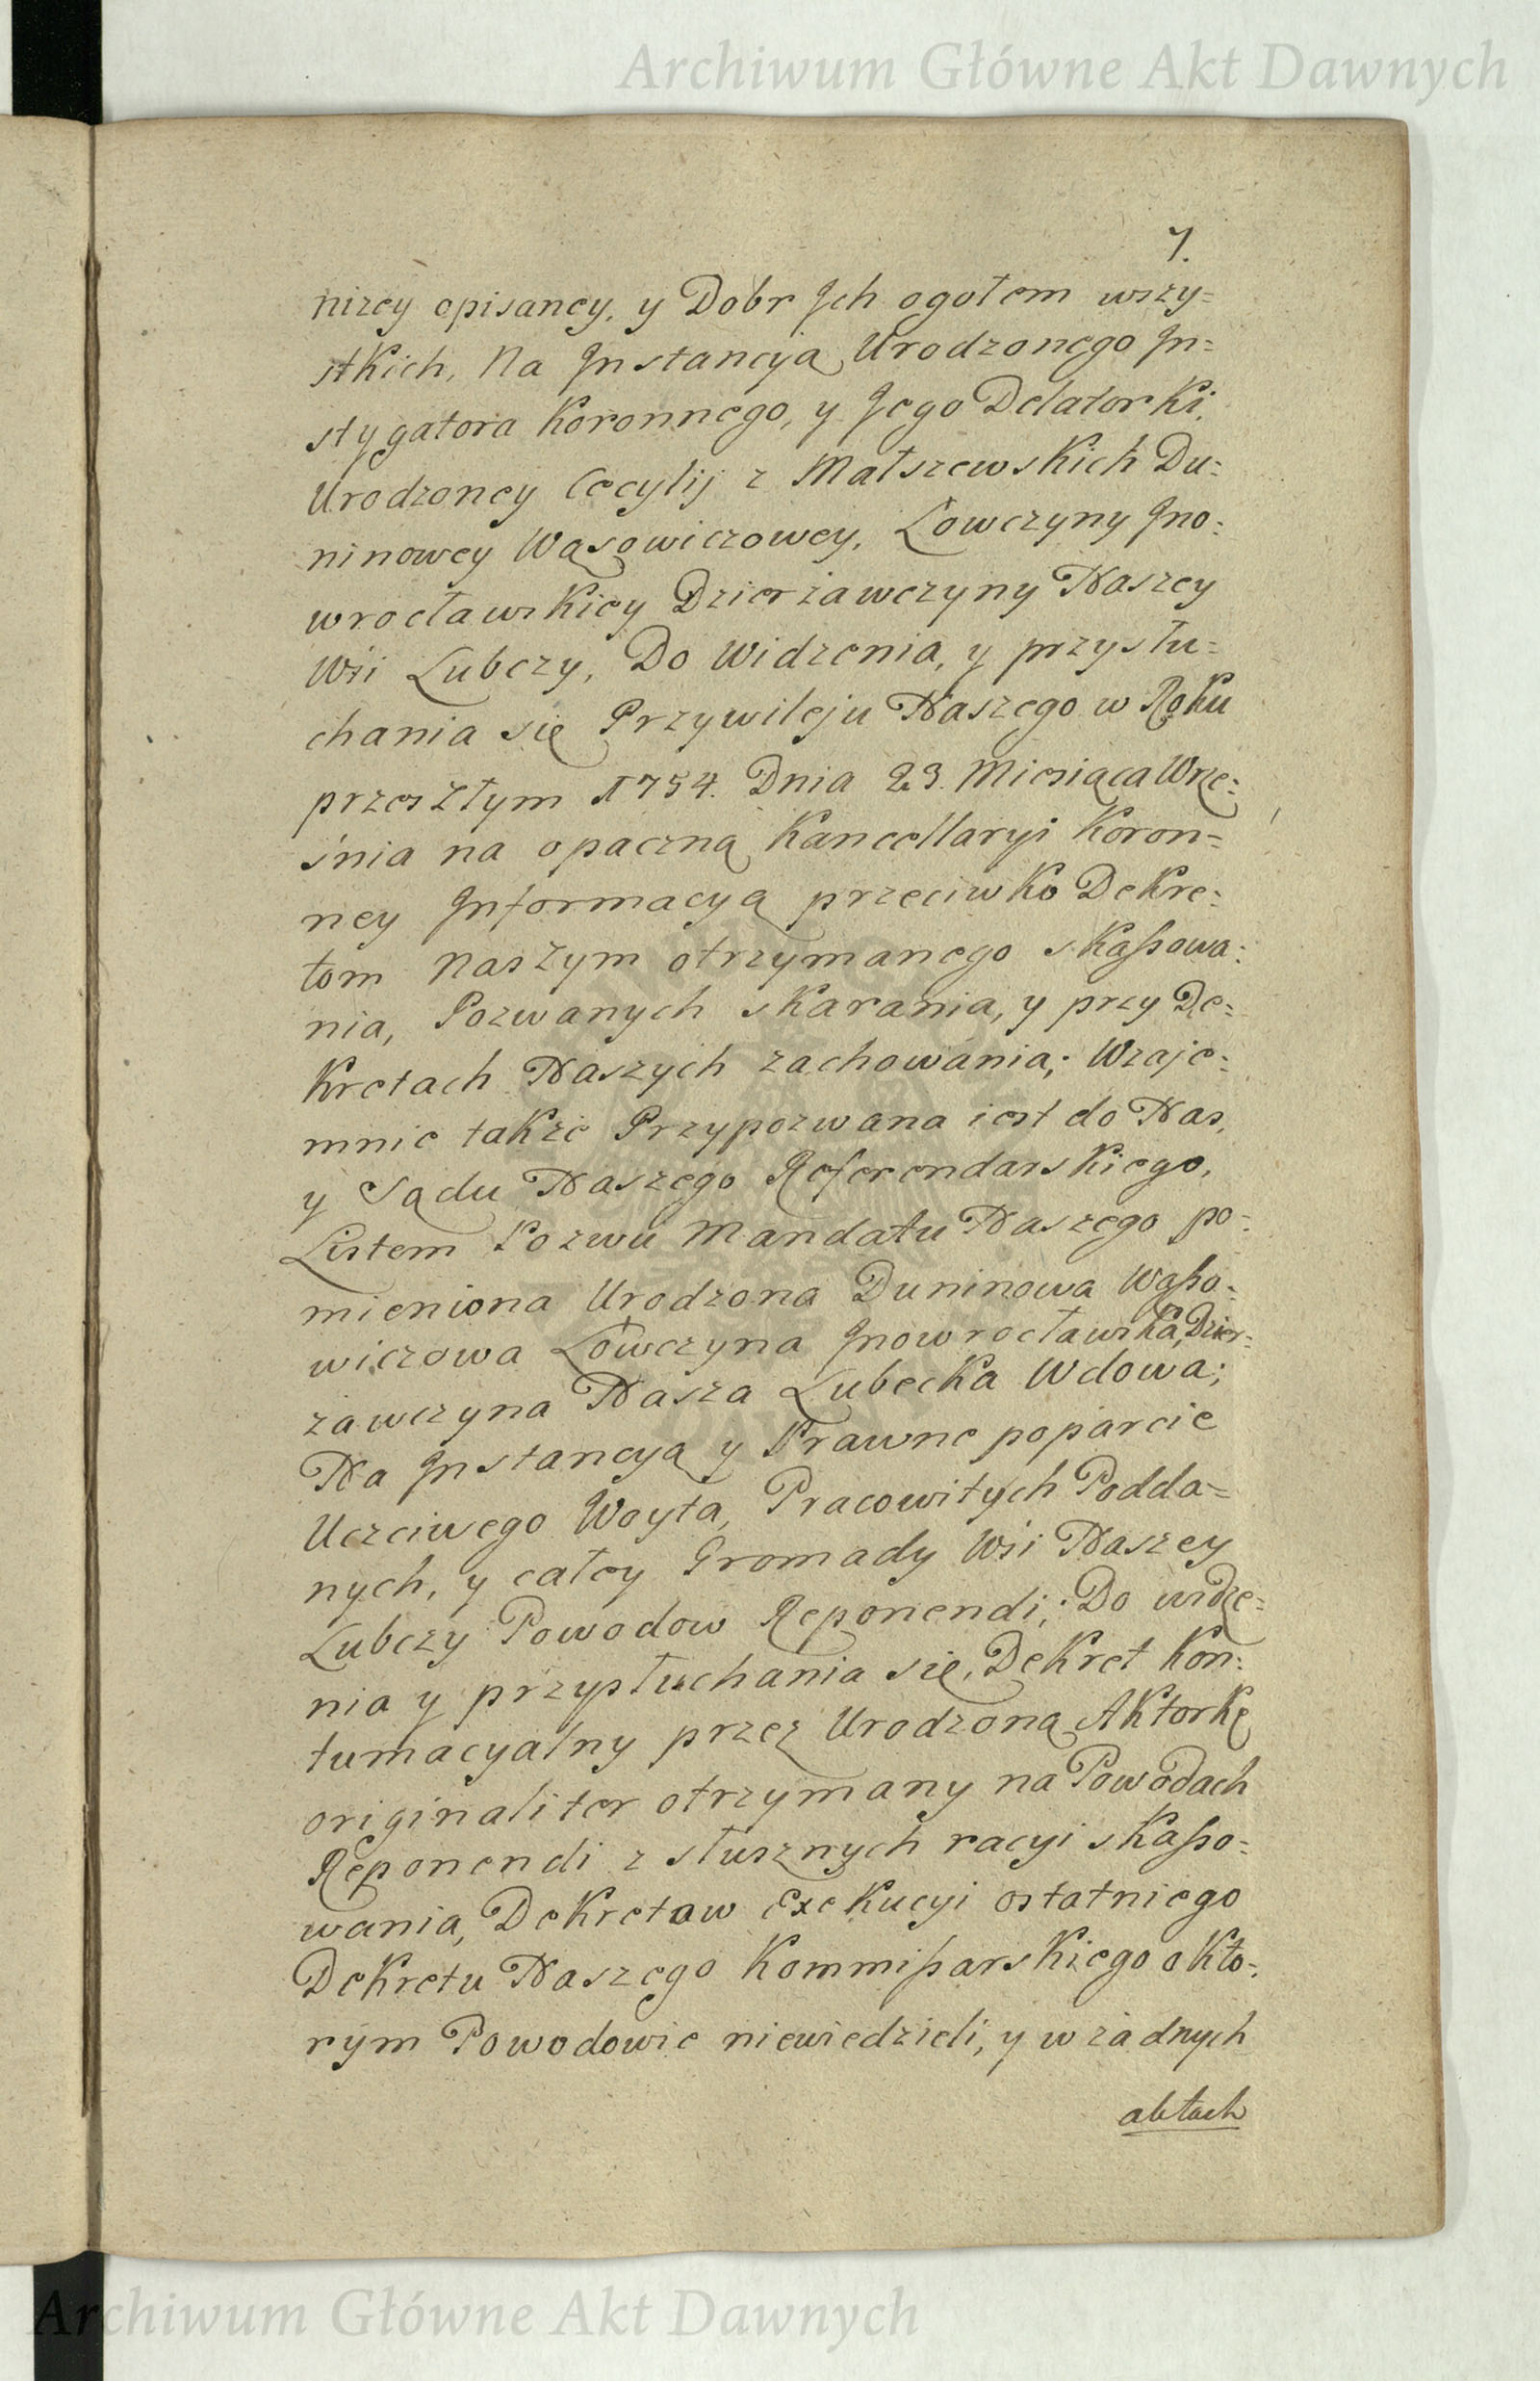 Archiwum Główne Akt Dawnych
7.
niżey opisaney, y Dobr Ich ogołem wszy=
stkich, Na Instancyą Urodzonego In=
stygatora Koronnego, y Jego Delatorki,
Urodzoney Cecylij z Małszewskich Du=
ninowey Wąsowiczowey, Łowczyny Ino=
wrocławskiey Dzierżawczyny Naszey
Wsi Lubczy, Do Widzenia, y przysłu=
chania się Przywileju Naszego w Roku
przeszłym 1754. Dnia 23. Miesiąca Wrze=
śnia na opaczną Kancellaryi Koron=
ney Informacyą przeciwko Dekre=
tom Naszym otrzymanego skaßowa=
nia, Pozwanych skarania, y przy De=
kretach Naszych zachowania; Wzaje=
mnie także Przypozwana iest do Nas,
y Sądu Naszego Referendarskiego,
Listem Pozwu Mandatu Naszego po=
mieniona Urodzona Duninowa Wąßo=
wiczowa Łowczyna Inowrocławska, Dzier=
zawczyna Nasza Lubecka Wdowa;
Na Instancyą y Prawne poparcie
Uczciwego Woyta, Pracowitych Podda=
nych, y całey Gromady Wsi Naszey
Lubczy Powodow Reponendi; Do widze=
nia y przysłuchania się, Dekret Kon=
tumacyalny przez Urodzoną Aktorkę
originaliter otrzymany na Powodach
Reponendi z słusznych racyi skaßo=
wania, Dekretow Exekucyi ostatniego
Dekretu Naszego Kommißarskiego o kto=
rym Powodowie niewiedzieli, y w żadnych
aktach
Archiwum Główne Akt Dawnych